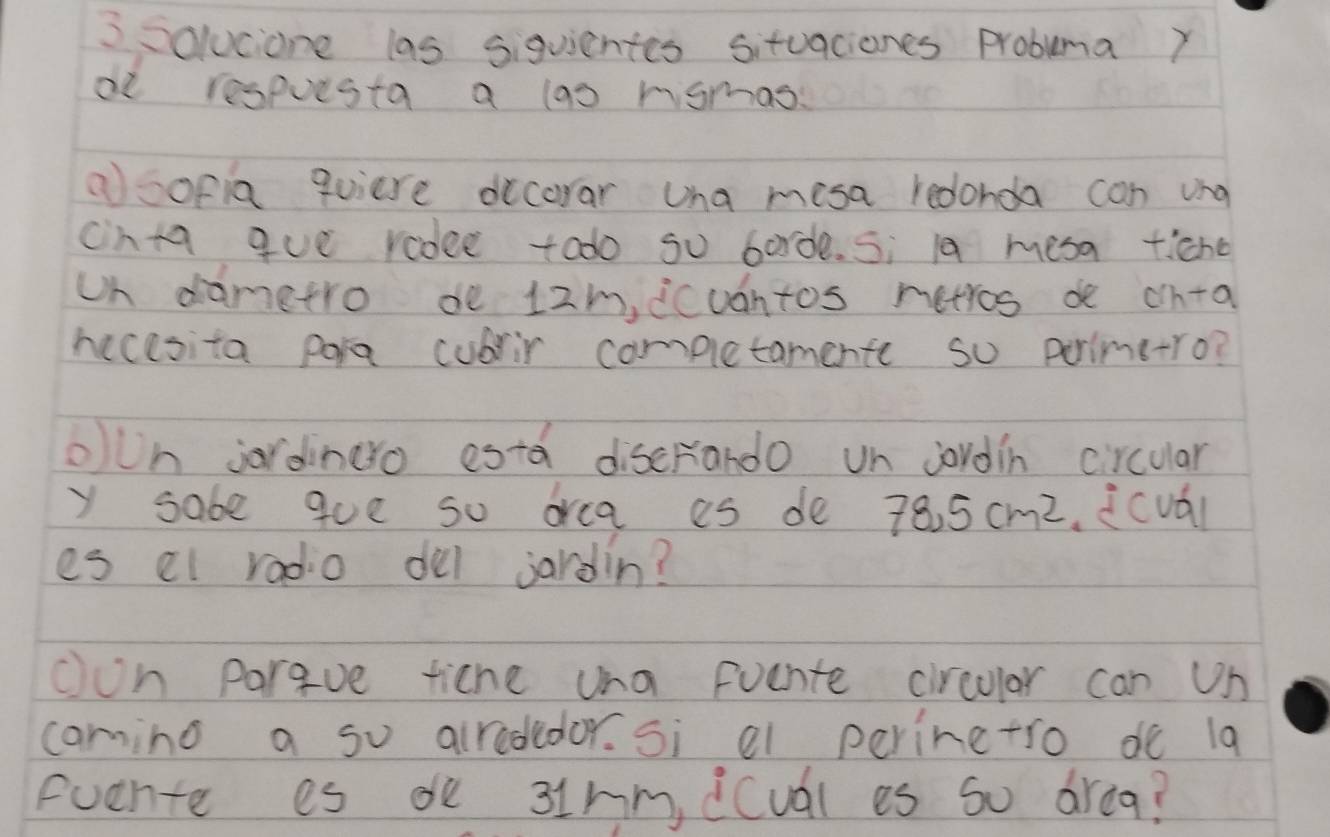 3. Solucione las siguientes situaciones problema y
de respuesta a las mismas.
a) Sofía quiere decorar una mesa redonda con una
cinta que rodee todo su borde. Si la mesa tiene
un diámetro de 12m, ¿Cuántos metros de cinta
necesita para cubrir completamente su perímetro?
b) Un jardinero está diseñando un jardín circular
y sabe que su área es de 78,5 cm2. ¿Cuál
es el radio del jardín?
c) Un parque tiene una fuente circular con un
camino a su alrededor. Si el perímetro de la
fuente es de 31 mm, ¿Cuál es su área?